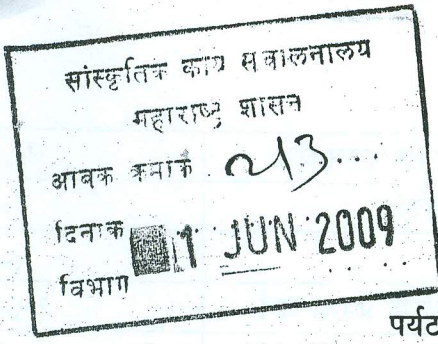 सांस्कृतिक कार्य संचालनालय
महाराष्ट्र शासन
आवक क्रमांक
दिनांक 1 JUN 2009
विभाग
पर्यट